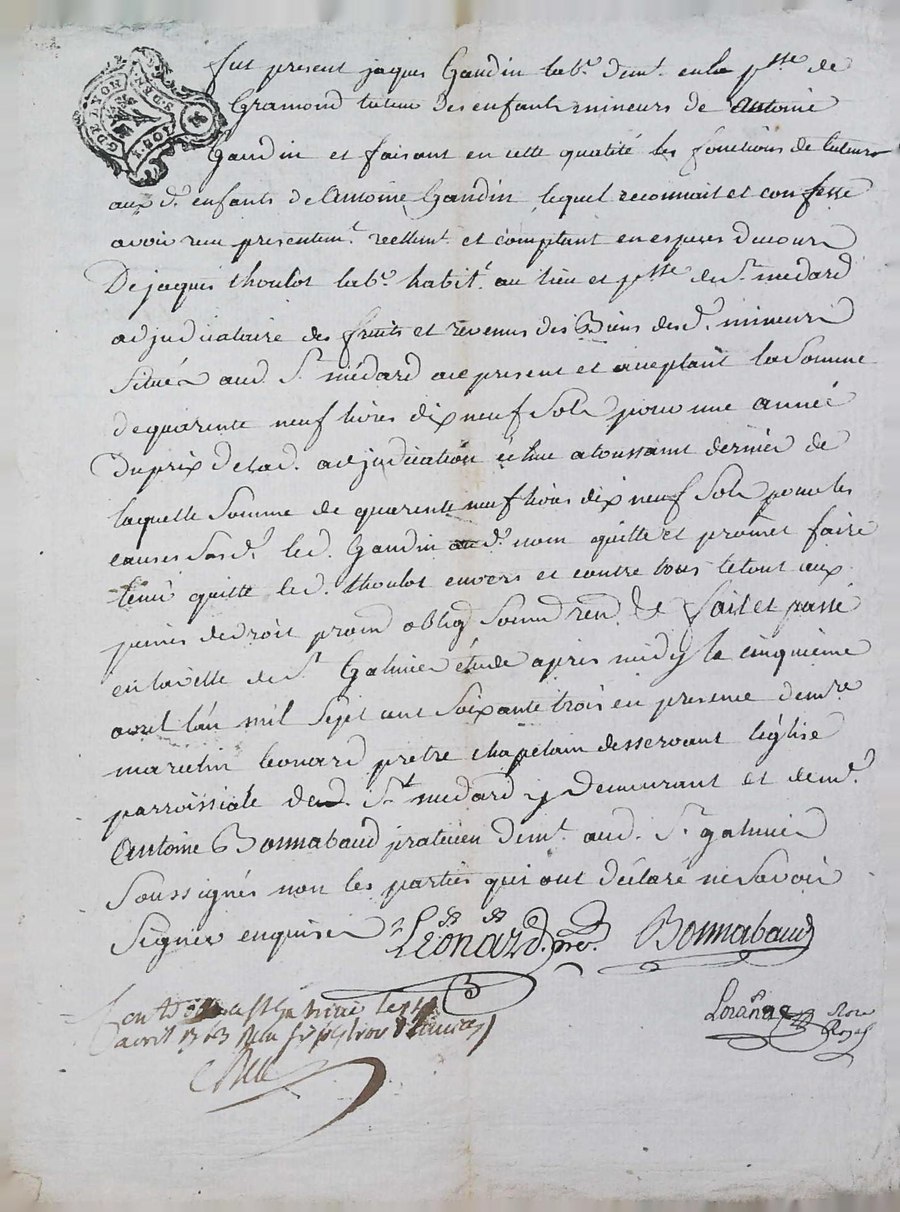 G. DE LYON
1. SOL
8. DEN.
fut present jaques Gaudin lab.r dem.t en la p.sse de
Gramond tuteur des enfants mineurs de Antoine
Gaudin et faisant en cette qualité les fonctions de tuteur
aux d.s enfants de Antoine Gaudin lequel reconnait et confesse
avoir reçu presentem.t reellem.t et comptant en especes de cours
De jaques thoulot lab.r habit.t au lieu et p.sse de S.t médard
adjudicataire des fruits et revenus des Biens des d.s mineurs
Situés aud. S.t médard ace present et acceptant la Somme
de quarente neuf livres dix neuf Sols pour une année
Du prix de lad. adjudication echue a toussaint dernier de
laquelle Somme de quarente neuf livres dix neuf Sols pour les
causes Sus d.s led. Gaudin aud.t nom quitte et promet faire
tenir quitte led. thoulot envers et contre tous le tout aux
peines de droit prom obligõn Soum renõn &c fait et passé
en la ville de S.t Galmier étude après midy le cinquieme
avril l'an mil Sept cent Soixante trois en presence de m.re
marcelin leonard prêtre chapelain desservant l'église
parroissiale dud. S.t médard y Demeurant et de m.e
Antoine Bonnabaud praticien dem.t aud. S.t galmier
Soussignés non les parties qui ont déclaré ne Savoir
Signer enquises
Léonard. pre. Bonnabaud
avril 1763